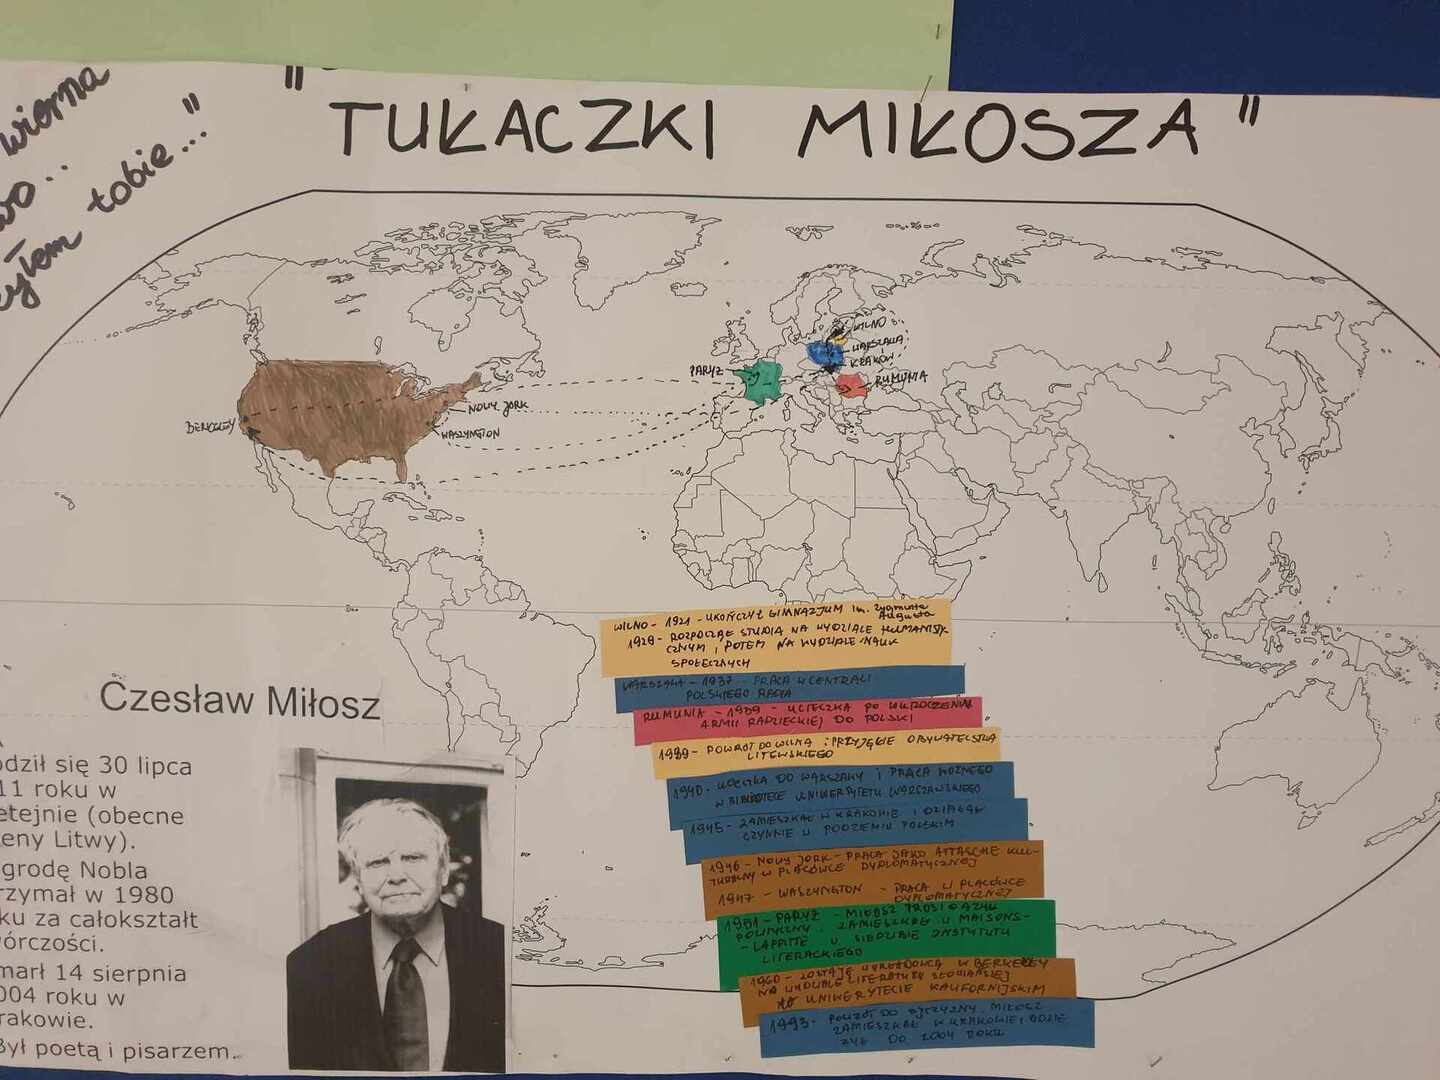 wierna
tobie..."
"TUŁACZKI MIŁOSZA"
WILNO
WARSZAWA
KRAKÓW
PARYŻ
RUMUNIA
NOWY JORK
BERKELEY
WASZYNGTON
WILNO - 1921 - UKOŃCZYŁ GIMNAZJUM im. Zygmunta
Augusta
1929 - ROZPOCZĄŁ STUDIA NA WYDZIALE HUMANISTY-
CZNYM I POTEM NA WYDZIALE NAUK
SPOŁECZNYCH
WARSZAWA - 1937 - PRACA W CENTRALI
POLSKIEGO RADIA
RUMUNIA - 1939 - UCIECZKA PO WKROCZENIU
ARMII RADZIECKIEJ DO POLSKI
1939 - POWRÓT DO WILNA I PRZYJĘCIE OBYWATELSTWA
LITEWSKIEGO
1940 - UCIECZKA DO WARSZAWY I PRACA WOŹNEGO
W BIBLIOTECE UNIWERSYTETU WARSZAWSKIEGO
1945 - ZAMIESZKAŁ W KRAKOWIE I DZIAŁAŁ
CZYNNIE W PODZIEMIU POLSKIM
1946 - NOWY JORK - PRACA JAKO ATTASCHE KUL-
TURALNY W PLACÓWCE DYPLOMATYCZNEJ
1947 - WASZYNGTON - PRACA W PLACÓWCE
DYPLOMATYCZNEJ
1951 - PARYŻ - MIŁOSZ PROSI O AZYL
POLITYCZNY. ZAMIESZKAŁ W MAISONS-
- LAFFITTE W SIEDZIBIE INSTYTUTU
LITERACKIEGO
1960 - ZOSTAJE WYKŁADOWCĄ W BERKELEY
NA WYDZIALE LITERATURY SŁOWIAŃSKIEJ
NA UNIWERYTECIE KALIFORNIJSKIM
1993 - POWRÓT DO OJCZYZNY. MIŁOSZ
ZAMIESZKAŁ W KRAKOWIE I GDZIE
ŻYŁ DO 2004 ROKU
Czesław Miłosz
odził się 30 lipca
11 roku w
etejnie (obecne
eny Litwy).
grodę Nobla
rzymał w 1980
ku za całokształt
wórczości.
marł 14 sierpnia
004 roku w
rakowie.
Był poetą i pisarzem.